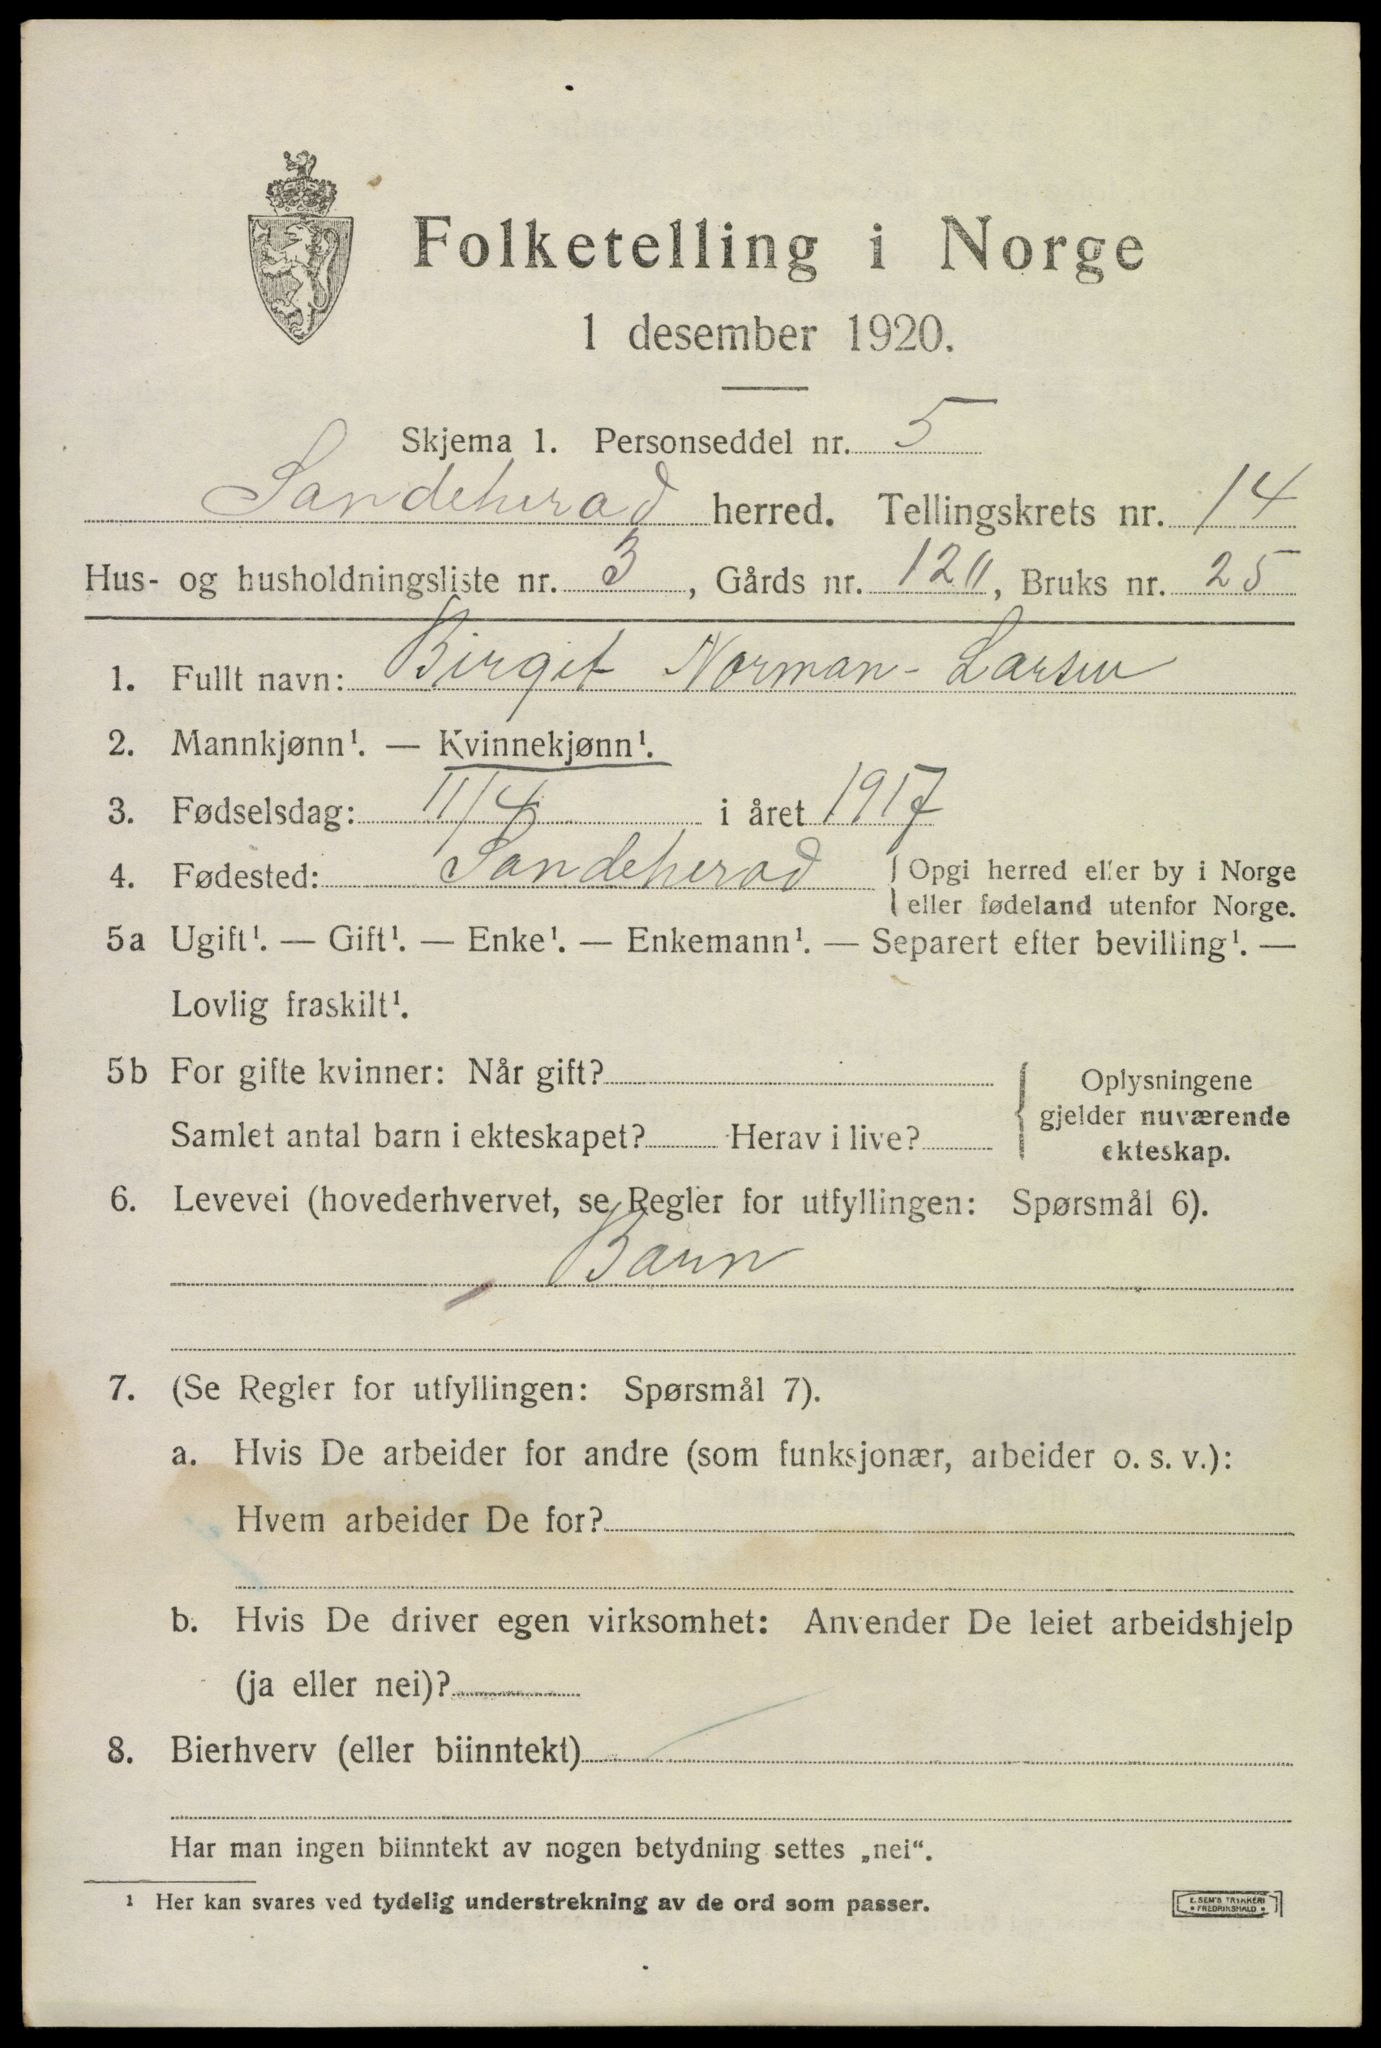 Folketelling i Norge
1 desember 1920.
Skjema 1. Personseddel nr. 5
Sandeherad herred. Tellingskrets nr. 14
Hus- og husholdningsliste nr. 3, Gårds nr. 120, Bruks nr. 25
1. Fullt navn: Birgit Norman-Larsen
2. Mannkjønn¹. — Kvinnekjønn¹.
3. Fødselsdag: 11/4 i året 1917
4. Fødested: Sandeherad { Opgi herred eller by i Norge
eller fødeland utenfor Norge.
5a Ugift¹. — Gift¹. — Enke¹. — Enkemann¹. — Separert efter bevilling¹. —
Lovlig fraskilt¹.
5b For gifte kvinner: Når gift?
Samlet antal barn i ekteskapet? Herav i live?
{ Oplysningene
gjelder nuværende
ekteskap.
6. Levevei (hovederhvervet, se Regler for utfyllingen: Spørsmål 6).
Barn
7. (Se Regler for utfyllingen: Spørsmål 7).
a. Hvis De arbeider for andre (som funksjonær, arbeider o. s. v.):
Hvem arbeider De for?
b. Hvis De driver egen virksomhet: Anvender De leiet arbeidshjelp
(ja eller nei)?
8. Bierhverv (eller biinntekt)
Har man ingen biinntekt av nogen betydning settes „nei“.
¹ Her kan svares ved tydelig understrekning av de ord som passer.
E. SEM'S TRYKKERI
• FREDRIKSHALD •